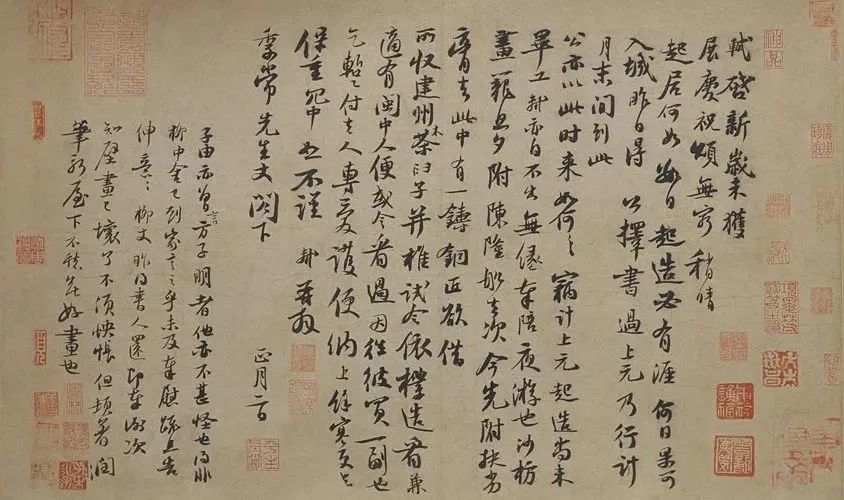 軾啓新歲未獲
展慶祝頌無窮稍晴
起居何如數日起造必有涯何日果可
入城昨日得公擇書過上元乃行計
月末間到此
公亦以此時來如何々竊計上元起造尚未
畢工軾亦自不出無緣奉陪夜游也沙枋
畫籠旦夕附陳隆船去次今先附扶劣
膏去此中有一鑄銅匠欲借
所收建州木茶臼子并椎試令依樣造看兼
適有閩中人便或令看過因往彼買一副也
乞暫付去人專愛護便納上餘寒更乞
保重冗中恕不謹軾再拜
季常先生丈閣下
正月二日
子由亦曾言方子明者他亦不甚怪也得非
柳中舍已到家言之乎未及奉慰疏且告
伸意々柳丈昨得書人還即奉謝次
知壁畫已壞了不須怏悵但頓著潤
筆新屋下不愁無好畫也